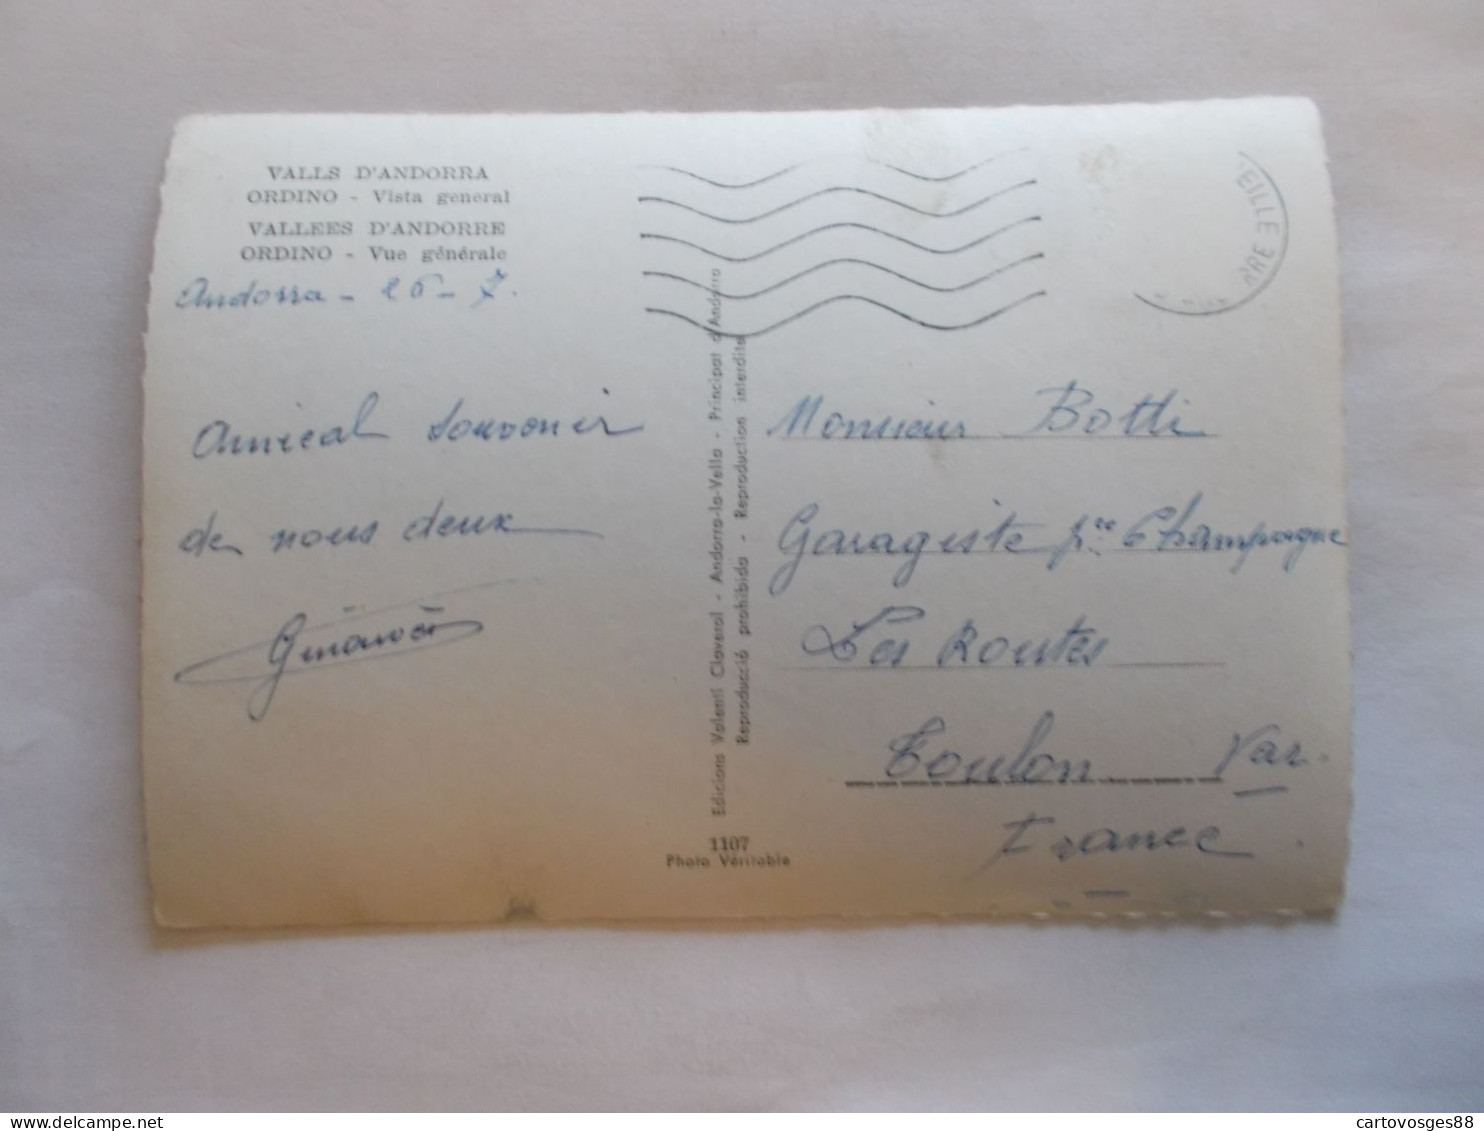 VALLS D'ANDORRA
ORDINO - Vista general
VALLEES D'ANDORRE
ORDINO - Vue générale
Andorra - 26 - 7.
Amical souvenir
de nous deux
Edicions Valenti Claverol - Andorra-la-Vella - Principat d'Andorra
Reproducció prohibida - Reproduction interdite
1107
Photo Véritable
EILLE
RRE
Monsieur Botti
Garagiste pce Champagne
Les Routes
Toulon Var.
France
cartovosges88